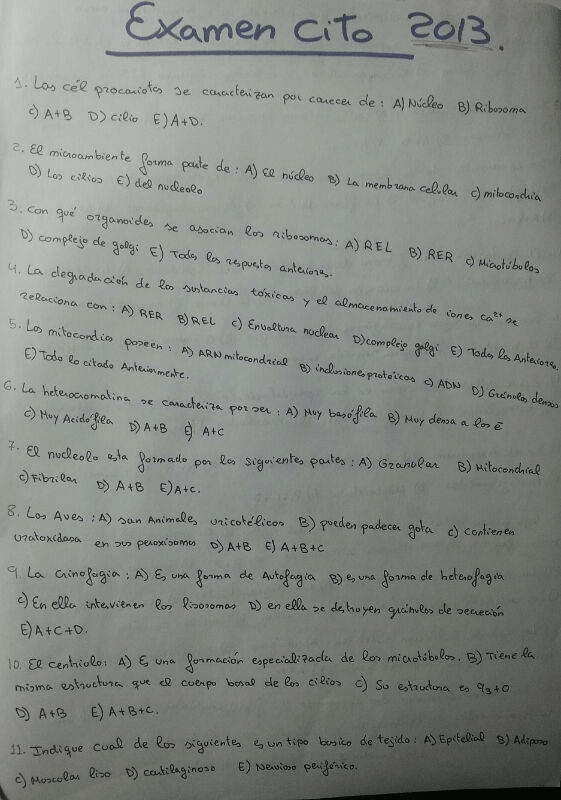 Examen Cito 2013.
1. Las cél procariotas se caracterizan por carecer de: A) Núcleo B) Ribosoma
C) A+B D) cilio E) A+D.
2. El microambiente forma parte de: A) El núcleo B) La membrana celular C) mitocondria
D) Los cilios E) del nucleolo
3. Con qué organoides se asocian los ribosomas: A) REL B) RER C) Microtúbulos
D) complejo de golgi E) Todas las respuestas anteriores.
4. La degradación de las sustancias tóxicas y el almacenamiento de iones Ca²⁺ se
relaciona con: A) RER B) REL C) Envoltura nuclear D) complejo golgi E) Todas las Anteriores.
5. Las mitocondias poseen: A) ARN mitocondrial B) inclusiones proteicas C) ADN D) Gránulos densos
E) Todo lo citado Anteriormente.
6. La heterocromatina se caracteriza por ser: A) Muy basófila B) Muy densa a los é
C) Muy Acidófila D) A+B E) A+C
7. El nucleolo esta formado por las siguientes partes: A) Granular B) Mitocondrial
C) Fibrilar D) A+B E) A+C.
8. Las Aves: A) san Animales uricotélicos B) pueden padecer gota C) contienen
uratoxidasa en sus peroxisomas D) A+B E) A+B+C
9. La Crinofagia: A) Es una forma de Autofagia B) es una forma de heterofagia
C) En ella intervienen los lisosomas D) en ella se destruyen gránulos de secreción
E) A+C+D.
10. El centriolo: A) Es una formación especializada de los microtúbulos. B) Tiene la
misma estructura que el cuerpo basal de los cilios C) Su estructura es 9₃+0
D) A+B E) A+B+C.
11. Indique cual de los siguientes es un tipo basico de tejido: A) Epitelial B) Adiposo
C) Muscular liso D) cartilaginoso E) Nervioso periférico.